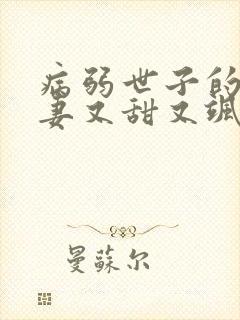 病弱世子的
妻又甜又飒
曼蘇尔